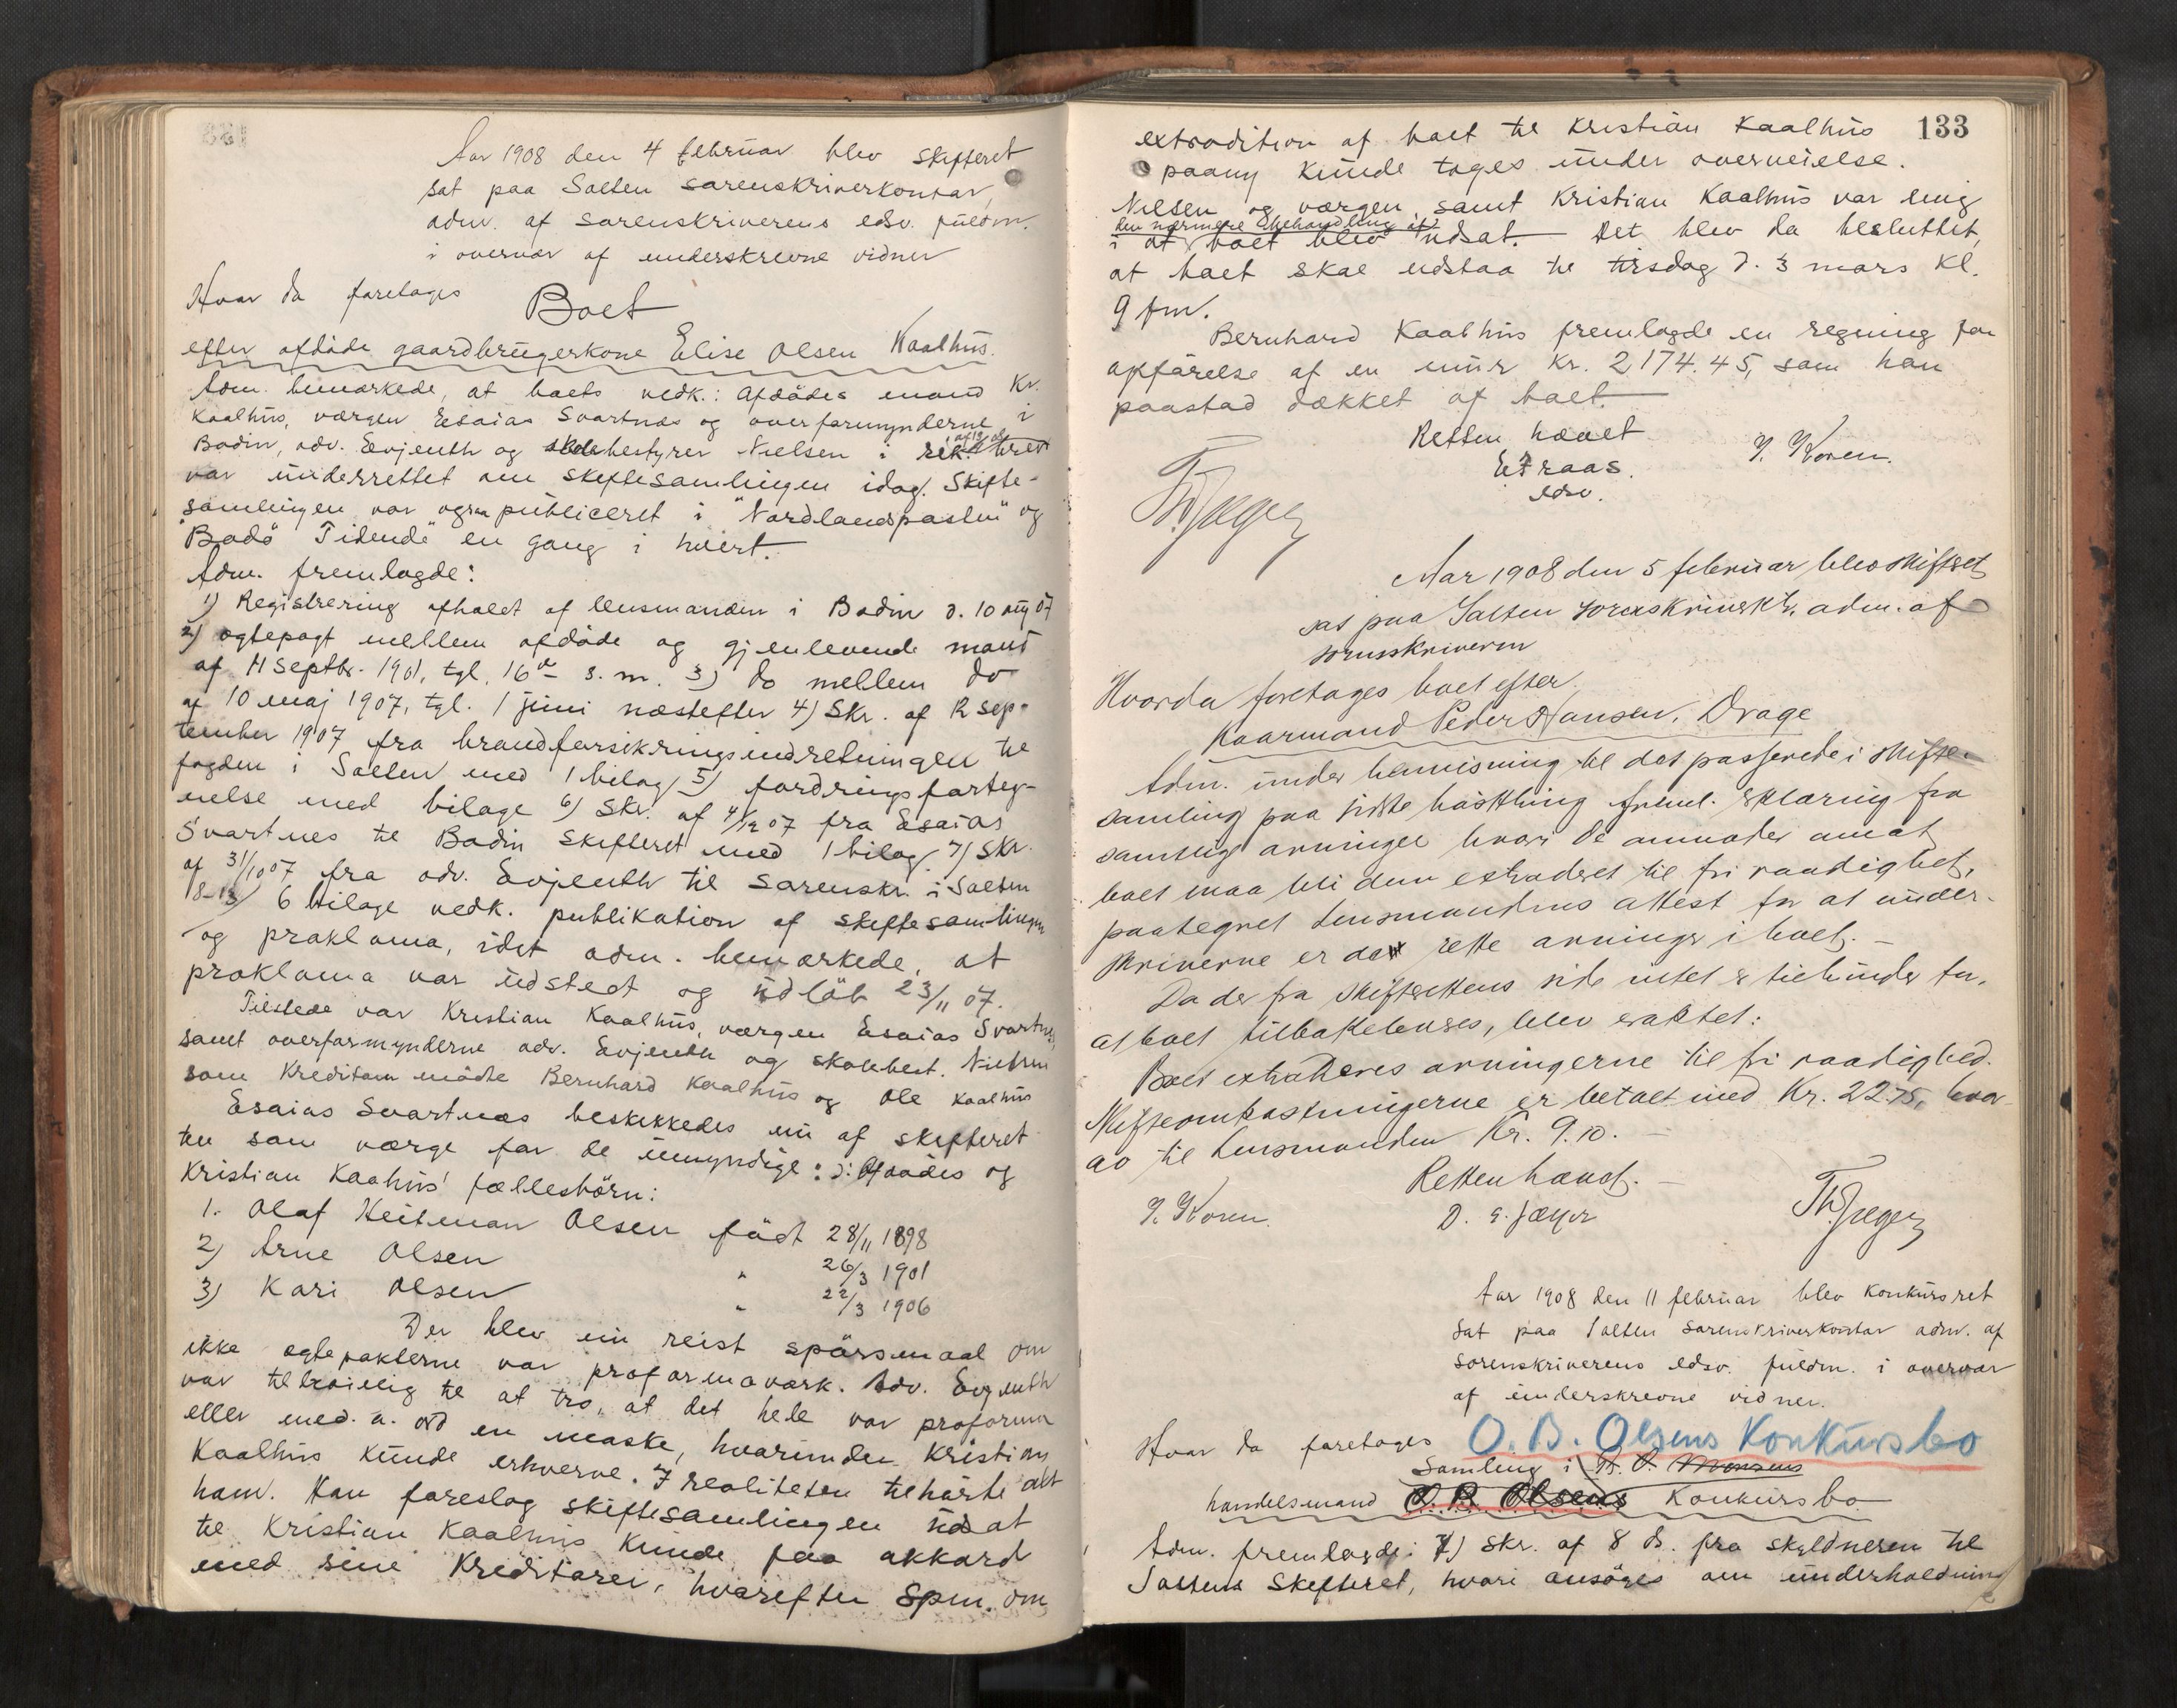 Aar 1908 den 4 februar blev skifteret
sat paa Salten sorenskriverkontor,
adm. af sorenskriverens edsv. fuldm.
i overvær af underskrevne vidner
Hvor da foretoges Boet
efter afdøde gaardbrugerkone Elise Olsen Kaalhus.
Adm. bemærkede, at boets vedk.: Afdødes mand Kr.
Kaalhus, værgen Esaias Svartnæs og overformynderne i
Bodin, adv. Evjenth og skolebestyrer Nielsen i rek. brev
var underrettet om skiftesamlingen idag. Skifte-
samlingen var ogsaa publiceret i "Nordlandsposten" og
"Bodø Tidende" en gang i hvert.
Adm. fremlagde:
1) Registrering afholdt af lensmanden i Bodin d. 10 aug 07
2) ægtepagt mellem afdøde og gjenlevende mand
af 11 septbr. 1901, tgl. 16de s. m. 3) do mellem do
af 10 maj 1907, tgl. 1 juni næstefter 4) Skr. af 12 sep-
tember 1907 fra brandforsikringsindretningen til
fogden i Salten med 1 bilag 5) fordringsforteg-
nelse med bilage 6) Skr. af 4/12 07 fra Esaias
Svartnes til Bodin Skifteret med 1 bilag 7) Skr.
af 31/10 07 fra adv. Evjenth til sorenskr. i Salten
8-13) 6 bilage vedk. publikation af skiftesamlingen
og proklama, idet adm. bemærkede, at
proklama var udstedt og udløb 23/11 07.
Tilstede var Kristian Kaalhus, værgen Esaias Svartnes,
samt overformynderne adv. Evjenth og skolebest. Nielsen
som Kreditorer mødte Bernhard Kaalhus og Ole Kaalhus
Esaias Svartnæs beskikkedes nu af skifteret
ten som værge for de umyndige: ɔ: Afdødes og
Kristian Kaahus' fællesbørn:
1. Olaf Heitman Olsen født 28/11 1898
2) Arne Olsen " 26/3 1901
3) Kari Olsen " 22/3 1906
Der blev nu reist spørsmaal om
ikke ægtepakterne var proformaverk. Adv. Evjenth
var tilbøielig til at tro, at det hele var proforma
eller med. a. ord en maske, hvorunder Kristian
Kaalhus kunde erhverve. I realiteten tilhørte alt
ham. Han foreslog skiftesamlingen udsat
til Kristian Kaalhus kunde faa akkord
med sine Kreditorer, hvorefter Spm. om
133
extradition af boet til Kristian Kaalhus
paany kunde tages under overveielse.
Nielsen og værgen samt Kristian Kaalhus var enig
den nærmere behandling af
i at boet blev udsat. Det blev da besluttet,
at boet skal udstaa til tirsdag d. 3 mars Kl.
9 fm.
Bernhard Kaalhus fremlagde en regning for
opførelse af en mur Kr. 2174.45, som han
paastod dækket af boet.
Retten hævet
E Fraas. J. Koren.
edsv.
Th Jæger
Aar 1908 den 5 februar blev skifteret
sat paa Salten sorenskriverktr. adm. af
sorenskriveren
Hvorda foretoges boet efter
Kaarmand Peder Hansen, Drage
Adm. under henvisning til det passerede i skifte-
samling paa sidste høstthing freml. erklæring fra
samtlige arvinger hvori de anmoder om at
boet maa bli dem extraderet til fri raadighet,
paategnet Lensmandens attest for at under-
skriverne er de rette arvinger i boet. —
Da der fra skifterettens side intet er tilhinder for,
at boet tilbakeleveres, blev eraktet:
Boet extraderes arvingerne til fri raadighed.
Skifteomkostningerne er betalt med Kr. 22.75, hvor-
av til Lensmanden Kr. 9.10. —
Retten hævet. —
J. Koren. Th Jæger
Aar 1908 den 11 februar blev Konkursret
sat paa Salten sorenskriverkontor adm. af
sorenskriverens edsv. fuldm. i overvær
af underskrevne vidner.
Hvor da foretoges O. B. Olsens Konkursbo
Samling i
handelsmand O. B. Olsens Konkursbo
Adm. fremlagde: 7) Skr. af 8 ds. fra skyldneren til
Saltens Skifteret, hvori ansøges om underholdning